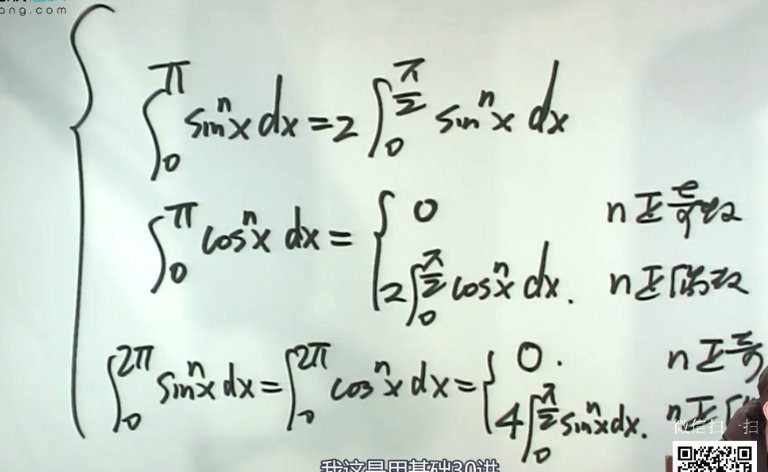 ang.com
∫₀^π sinⁿx dx = 2 ∫₀^(π/2) sinⁿx dx
∫₀^π cosⁿx dx = { 0 n正奇数
2 ∫₀^(π/2) cosⁿx dx. n正偶数
∫₀^(2π) sinⁿx dx = ∫₀^(2π) cosⁿx dx = { 0. n正奇
4 ∫₀^(π/2) sinⁿx dx. n正
微信扫一扫
我这是用基础30讲